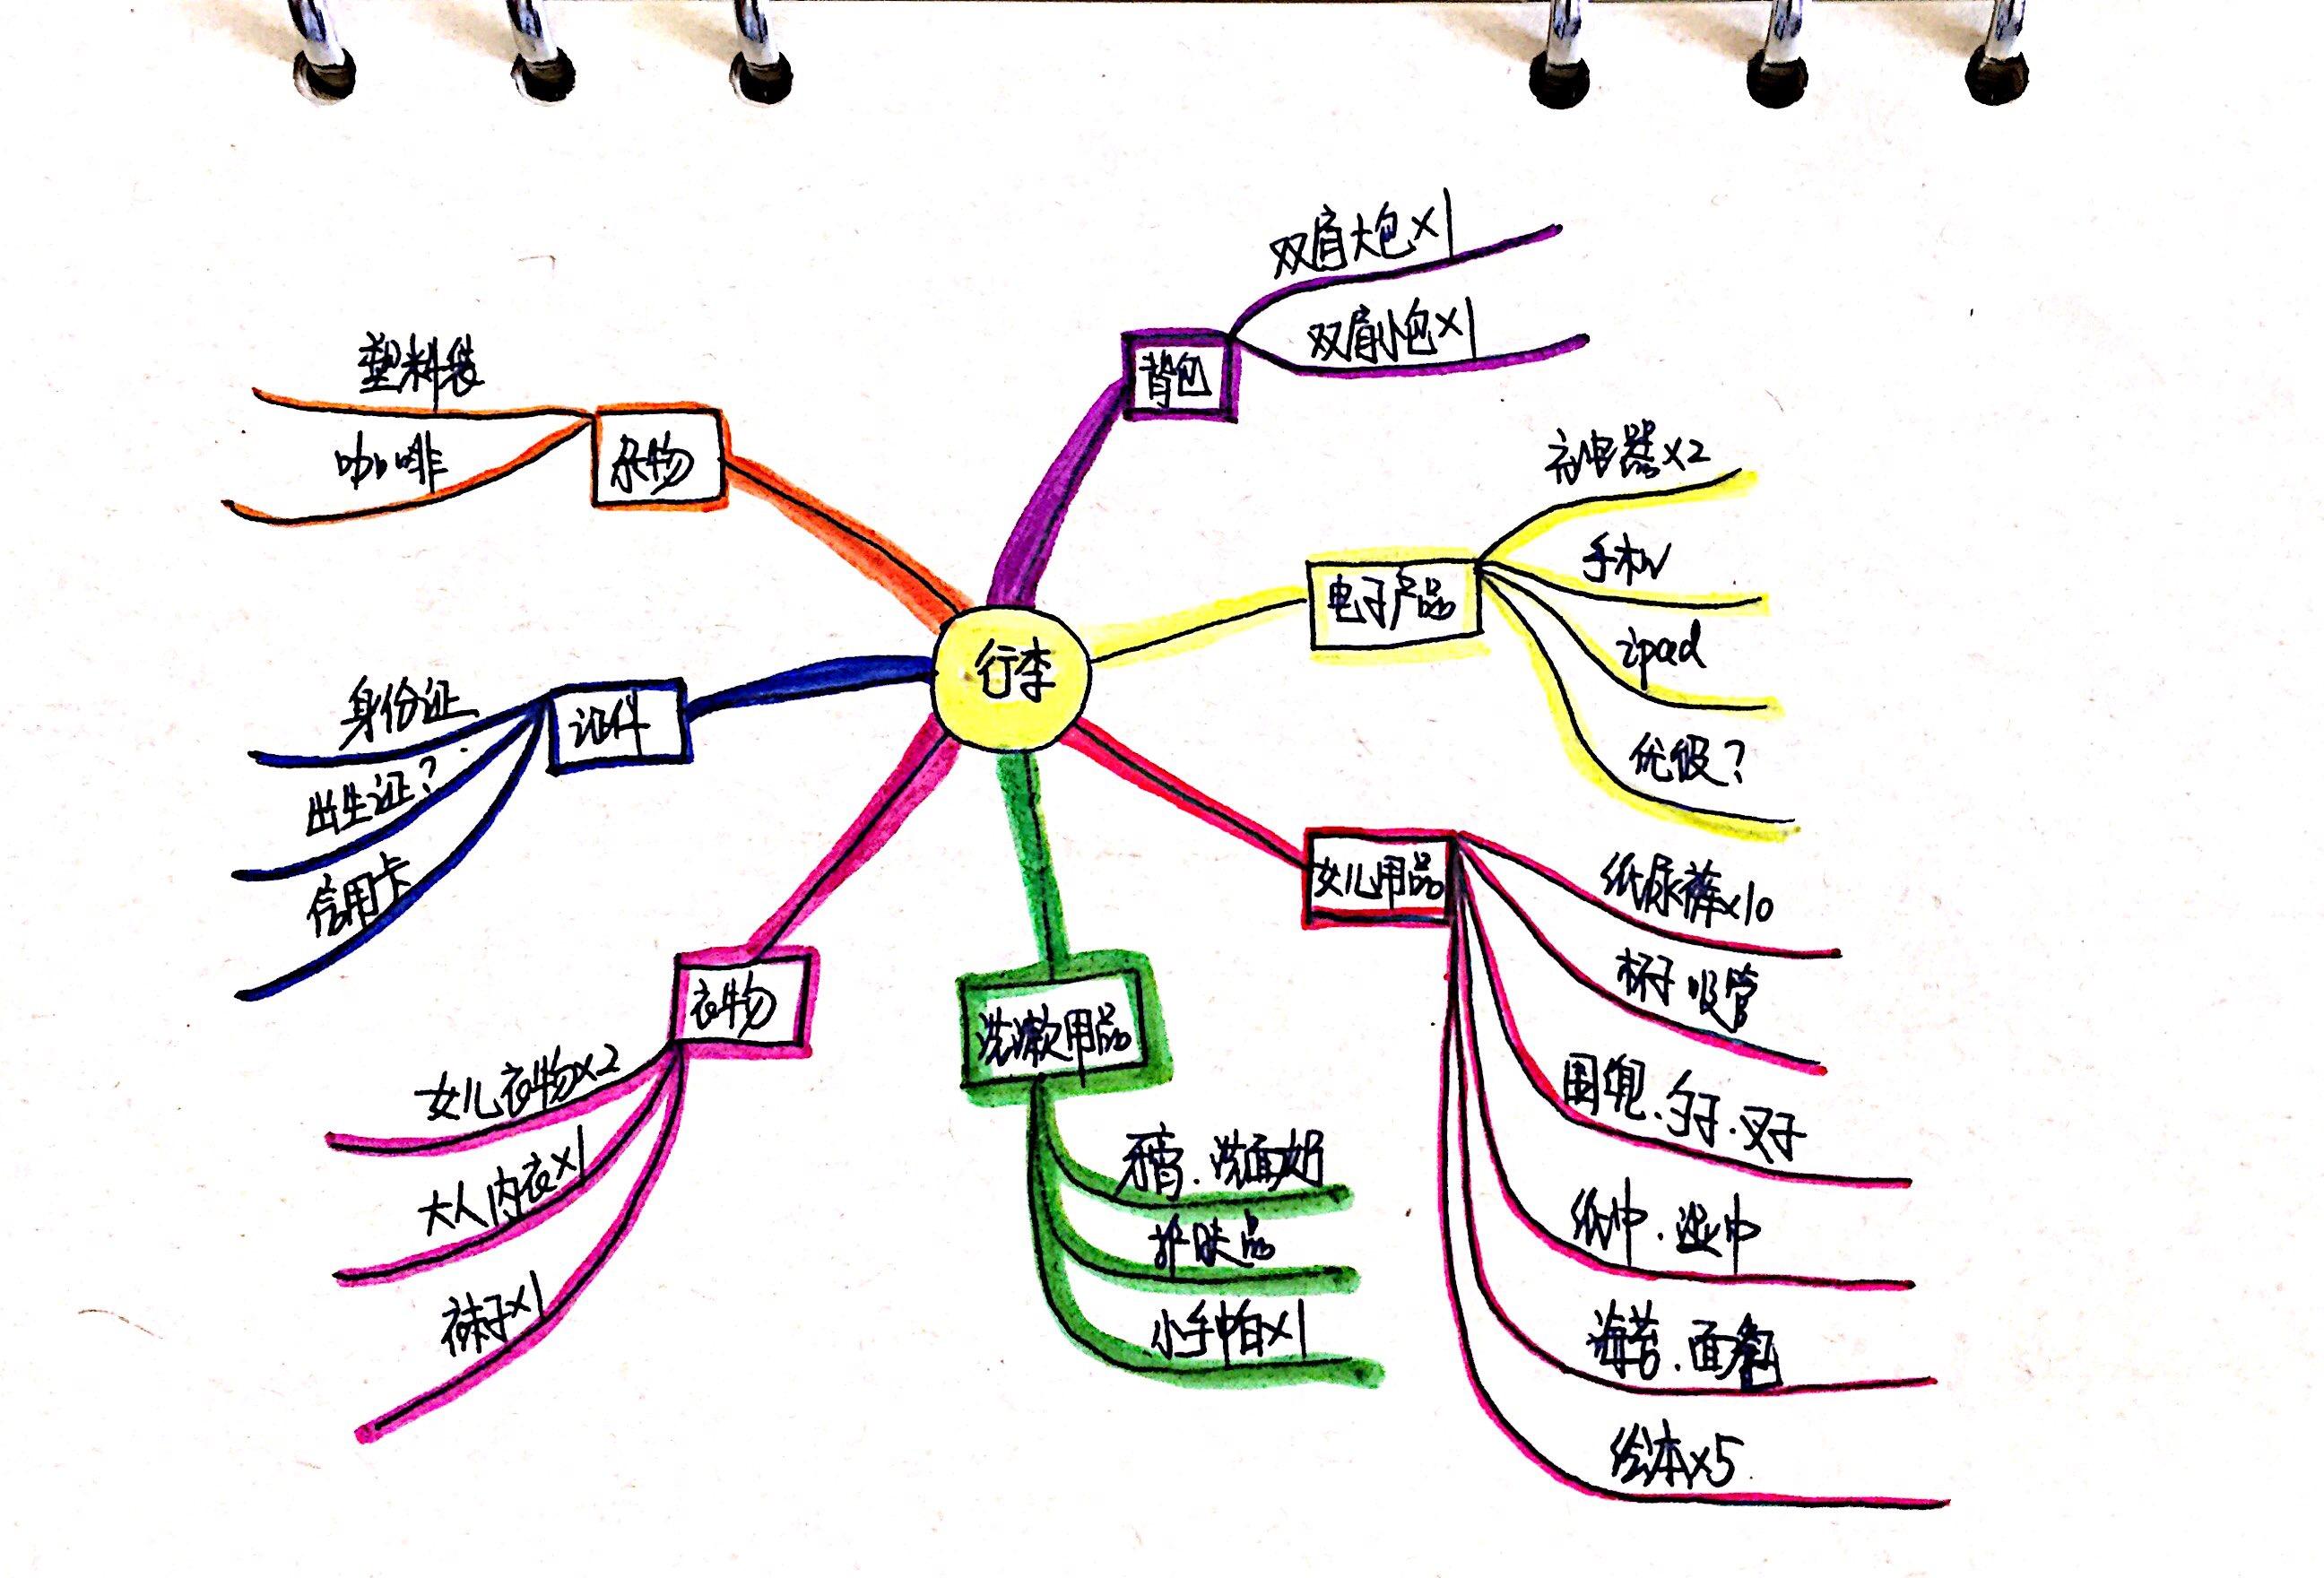 行李
背包
双肩大包×1
双肩小包×1
电子产品
充电器×2
手机
ipad
优极?
女儿用品
纸尿裤×10
杯子 吸管
围兜.勺子.叉子
纸巾.湿巾
海苔.面包
绘本×5
洗漱用品
牙膏.洗面奶
护肤品
小手帕×1
衣物
女儿衣物×2
大人内衣×1
袜子×1
证件
身份证
出生证?
信用卡
杂物
塑料袋
咖啡